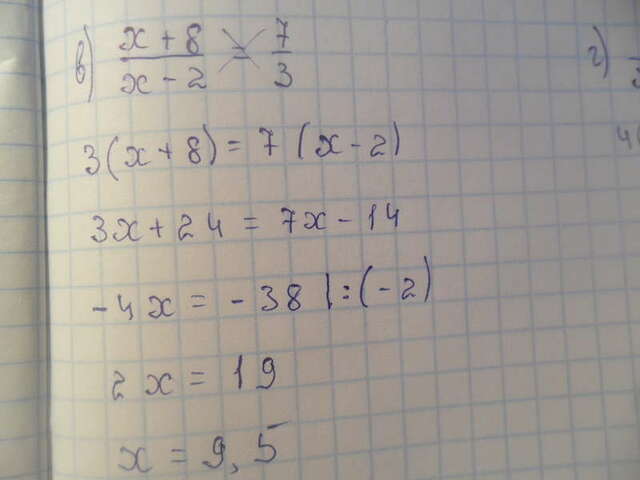 в) x + 8 / x - 2 = 7 / 3
3(x + 8) = 7(x - 2)
3x + 24 = 7x - 14
-4x = -38 |:(-2)
2x = 19
x = 9,5
г)